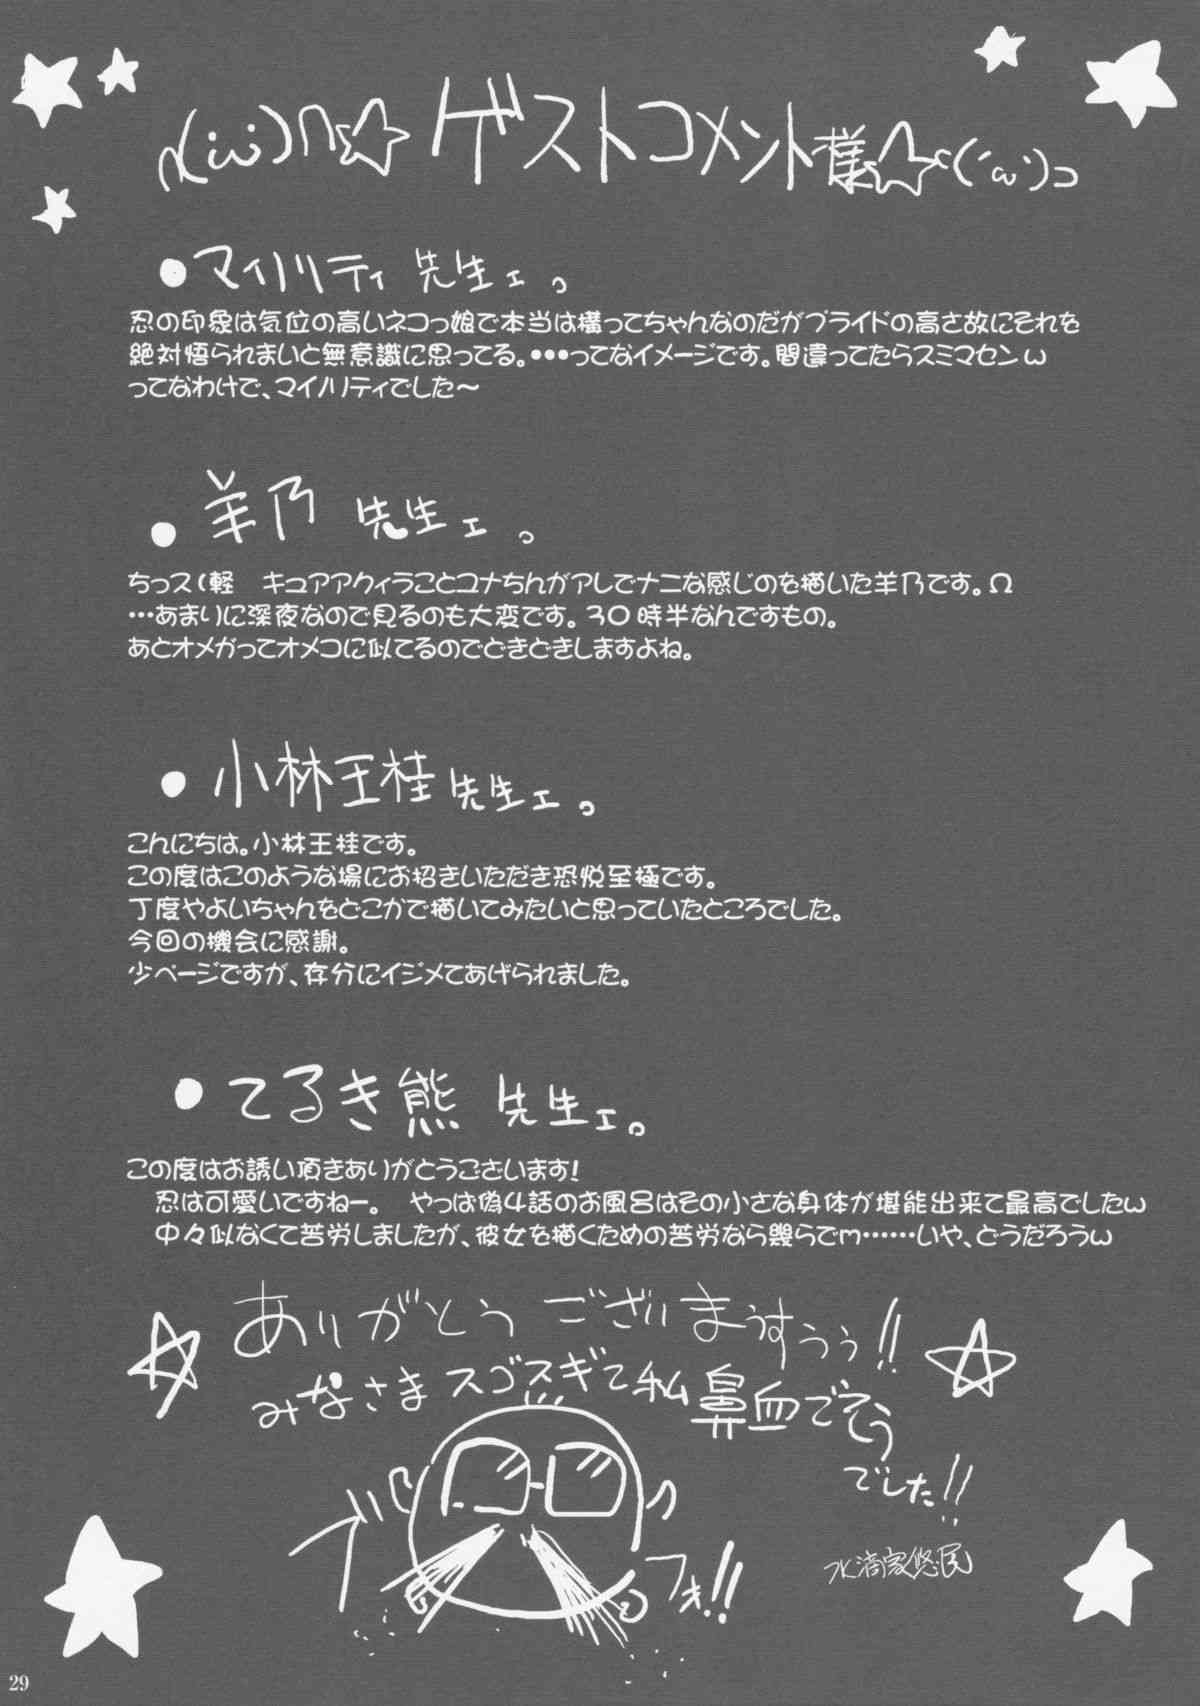 ゲストコメント様
●マイノリティ 先生ェ。
忍の印象は気位の高いネコっ娘で本当は構ってちゃんなのだがプライドの高さ故にそれを
絶対悟られまいと無意識に思ってる。・・・ってなイメージです。間違ってたらスミマセンω
ってなわけで、マイノリティでした～
●羊乃 先生ェ。
ちっス(軽　キュアアクィラことユナちんがアレでナニな感じのを描いた羊乃です。Ω
…あまりに深夜なので見るのも大変です。30時半なんですもの。
あとオメガってオメコに似てるのでどきどきしますよね。
●小林王桂 先生ェ。
こんにちは。小林王桂です。
この度はこのような場にお招きいただき恐悦至極です。
丁度やよいちゃんをどこかで描いてみたいと思っていたところでした。
今回の機会に感謝。
少ページですが、存分にイジメてあげられました。
●てるき熊 先生ェ。
この度はお誘い頂きありがとうございます!
忍は可愛いですねー。　やっぱ偽4話のお風呂はその小さな身体が堪能出来て最高でしたω
中々似なくて苦労しましたが、彼女を描くための苦労なら幾らでm……いや、どうだろうω
ありがとうございまぅすぅぅ!!
みなさまスゴスギて私鼻血でそう
でした!!
ブ
フォ!!
29